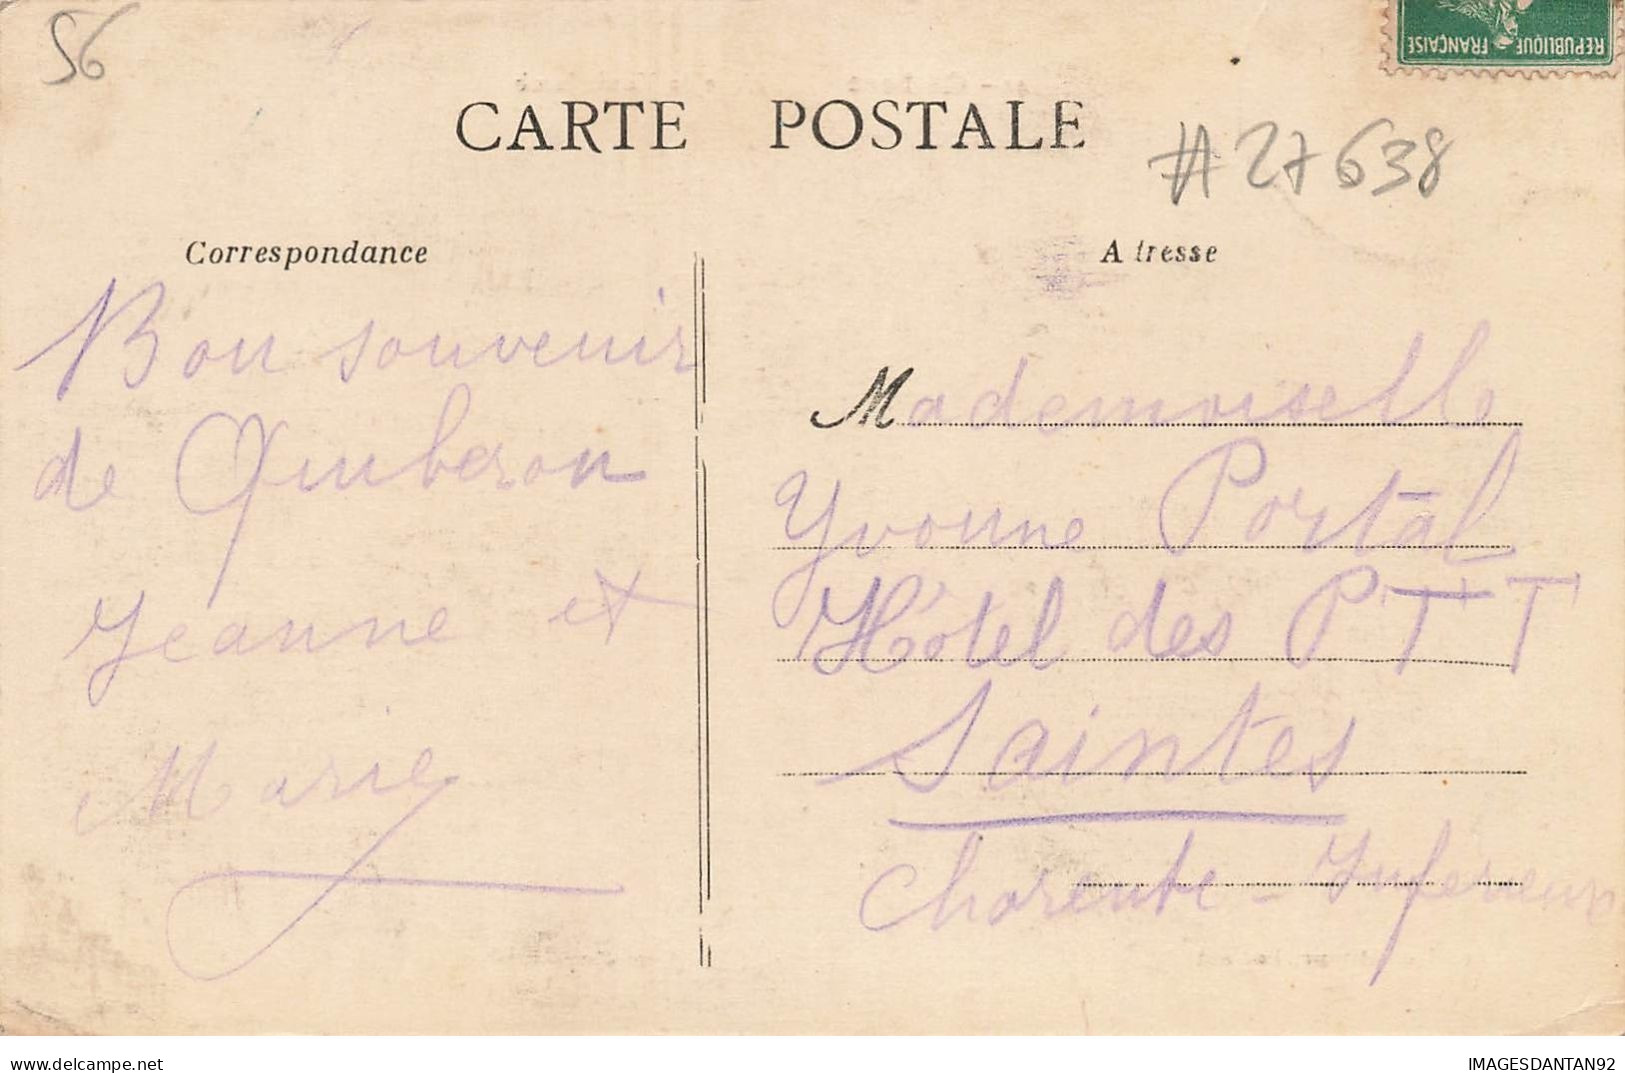 56
REPUBLIQUE FRANÇAISE
CARTE POSTALE
#27638
Correspondance
Bon souvenir
de Quiberon
Jeanne et
Marie
A tresse
Mademoiselle
Yvonne Portal
Hôtel des PTT
Saintes
Charente-Inferieure
delcampe.net
IMAGESDANTAN92